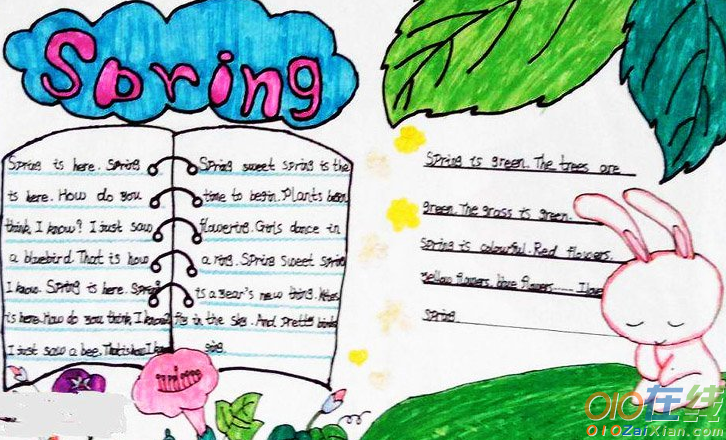 Spring
Spring is here. Spring
is here. How do you
think I know? I just saw
a bluebird. That is how
I know. Spring is here. Spring
is here. How do you think I know?
I just saw a bee. That is how I know
Spring sweet spring is the
time to begin. Plants begin
flowering. Girls dance in
a ring. Spring sweet spring
is a year's new thing. Kites
fly in the sky. And pretty birds
sing.
Spring is green. The trees are
green. The grass is green.
Spring is colourful. Red flowers.
Yellow flowers, blue flowers...... I love
spring.
010在线
010ZaiXian.com